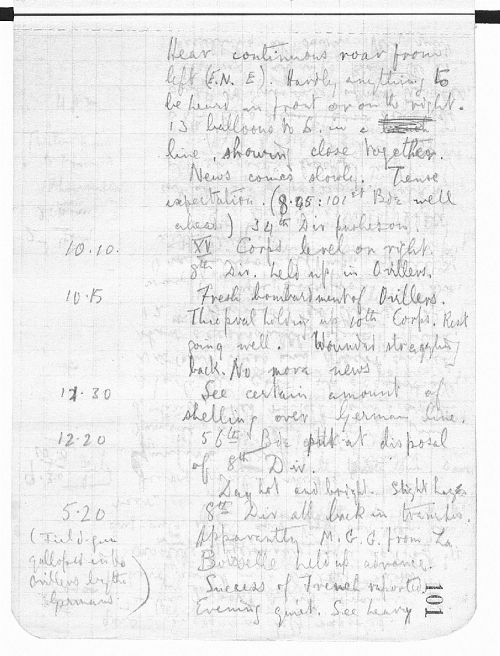 Hear continuous roar from
left (E.N.E). Hardly anything to
be heard in front or on the right.
13 balloons to S. in a
line, showing close together.
News comes slowly. Tense
expectation. (8.45: 101st Bde well
ahead) 34th Div
10.10. XV Corps level on right.
8th Div. held up in Ovillers.
10.15 Fresh bombardment of Ovillers.
Thiepval holding up 10th Corps. Rest
going well. Wounded straggling
back. No more news
12.30 See certain amount of
shelling over German line.
12.20 56th Bde put at disposal
of 8th Div.
Day hot and bright. Slight haze
5.20 8th Div all back in trenches.
(Field-gun Apparently M.G.s. from La
galloped into Boisselle held up advance.
Ovillers by the Success of French reported
Germans) Evening quiet. See heavy
101